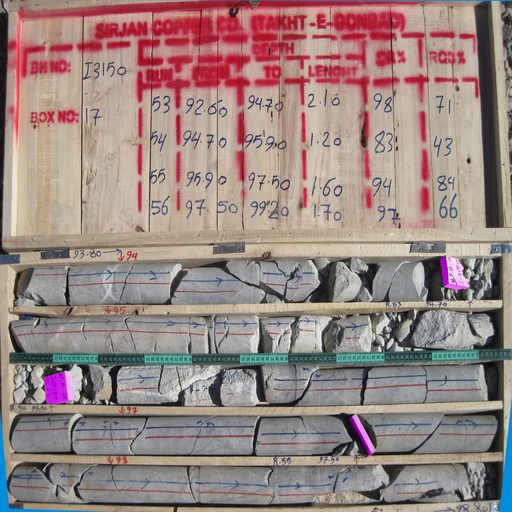 SIRJAN COPPER CO. (TAKHT-E-GONBAD)
BH NO: I3150
DEPTH
RUN FROM TO LENGHT CR% RQD%
53 92.60 94.70 2.10 98 71
BOX NO: 17
54 94.70 95.90 1.20 83 43
55 95.90 97.50 1.60 94 84
56 97.50 99.20 1.70 97 66
93.80 → ↓94
R.53 94.70
↓95
↓97
↓98
R.55 97.50
98.80